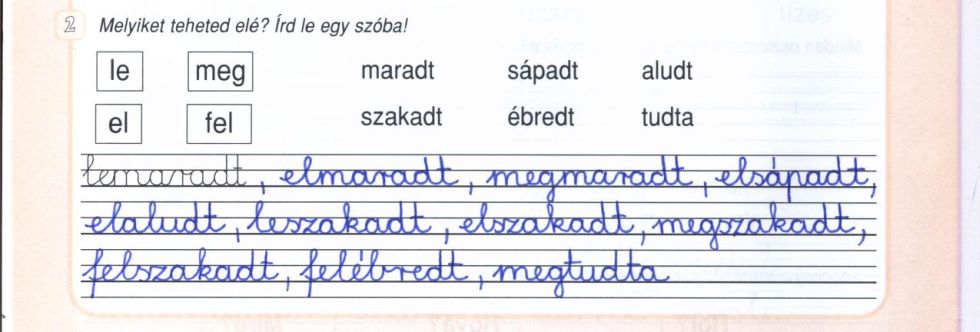 2 Melyiket teheted elé? Írd le egy szóba!
le meg maradt sápadt aludt
el fel szakadt ébredt tudta
lemaradt, elmaradt, megmaradt, elsápadt,
elaludt, leszakadt, elszakadt, megszakadt,
felszakadt, felébredt, megtudta